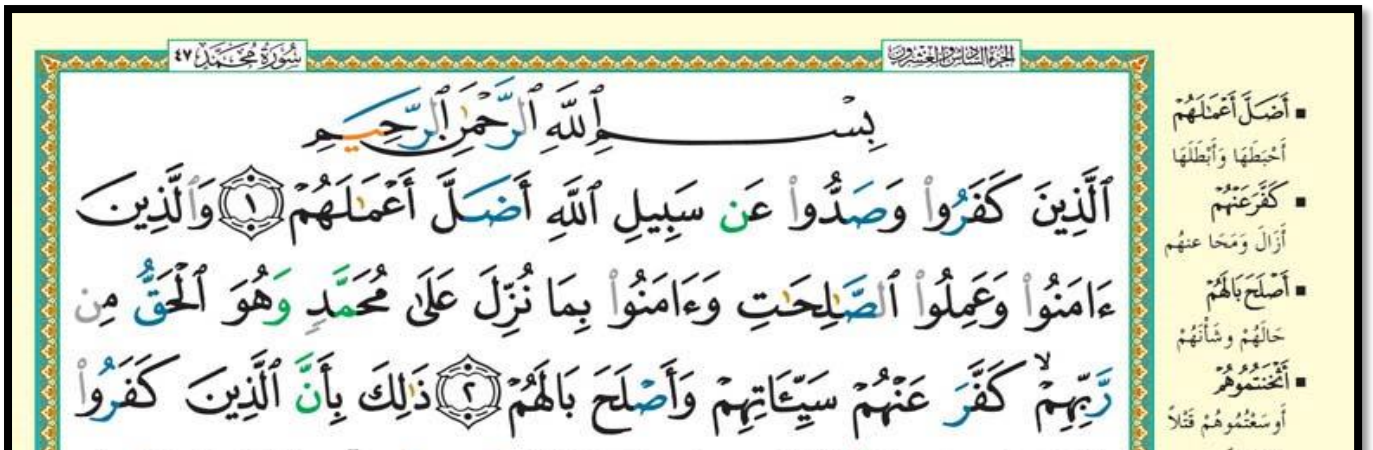 الجزء السادس والعشرون
سورة محمد ٤٧
بِسْمِ ٱللَّهِ ٱلرَّحْمَٰنِ ٱلرَّحِيمِ
ٱلَّذِينَ كَفَرُوا۟ وَصَدُّوا۟ عَن سَبِيلِ ٱللَّهِ أَضَلَّ أَعْمَٰلَهُمْ ١ وَٱلَّذِينَ
ءَامَنُوا۟ وَعَمِلُوا۟ ٱلصَّٰلِحَٰتِ وَءَامَنُوا۟ بِمَا نُزِّلَ عَلَىٰ مُحَمَّدٍ وَهُوَ ٱلْحَقُّ مِن
رَّبِّهِمْ ۙ كَفَّرَ عَنْهُمْ سَيِّـَٔاتِهِمْ وَأَصْلَحَ بَالَهُمْ ٢ ذَٰلِكَ بِأَنَّ ٱلَّذِينَ كَفَرُوا۟
▪ أَضَلَّ أَعْمَٰلَهُمْ
أَحْبَطَهَا وَأَبْطَلَهَا
▪ كَفَّرَ عَنْهُمْ
أَزَالَ وَمَحَا عنهُم
▪ أَصْلَحَ بَالَهُمْ
حَالَهُمْ وشَأْنَهُمْ
▪ أَثْخَنتُمُوهُمْ
أَوسَعْتُمُوهُمْ قَتْلاً